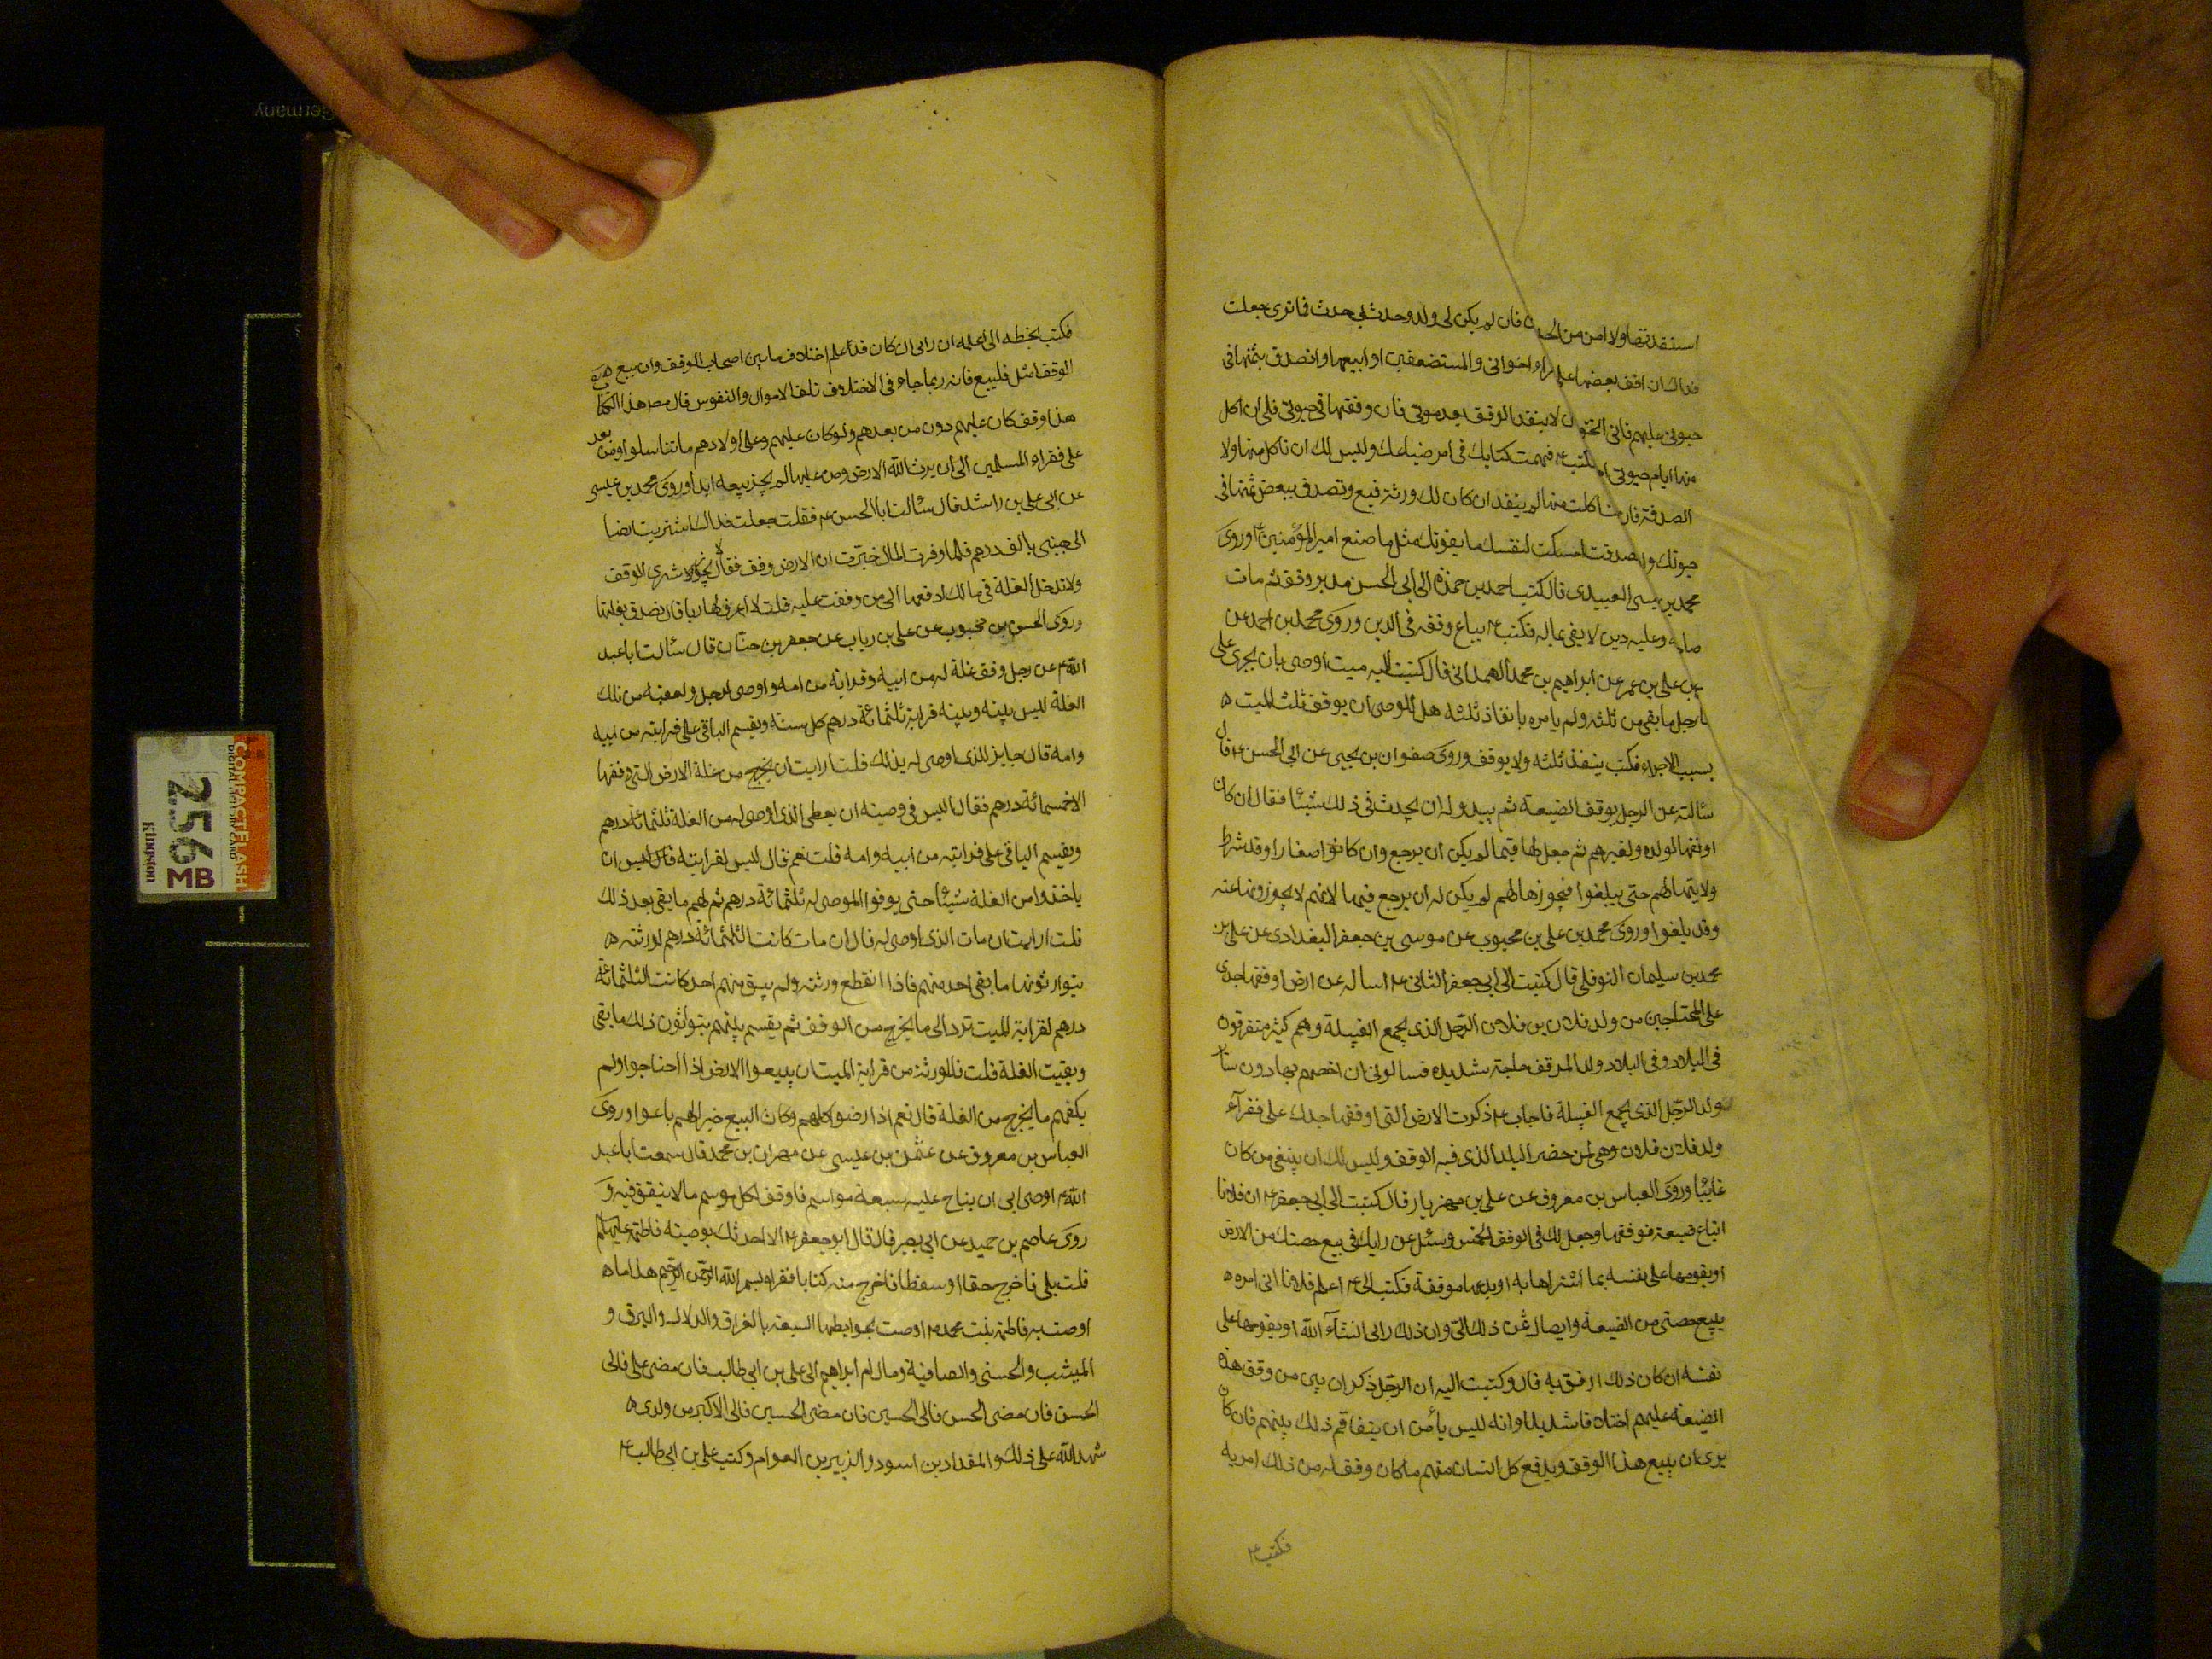 استنقذتها ولا امن من الحد فان لم يكن لي ولد وحدث بي حدث فما ترى جعلت
فداك ان اقف بعضها على فقراء اخواني والمستضعفين او ابيعها واتصدق بثمنها في
حيوتي عليهم فاني اتخوف ان لا ينفذ الوقف بعد موتي فان وقفتها في حيوتي فلي ان اكل
منها ايام حيوتي ام فكتب ع فهمت كتابك في امر ضياعك وليس لك ان تاكل منها ولا
الصدقة فان اكلت منها لم ينفذ ان كان لك ورثة فبع وتصدق ببعض ثمنها في
حيوتك وان تصدقت امسكت لنفسك ما يقوتك مثل ما صنع امير المؤمنين ع وروى
محمد بن عيسى العبيدي قال كتب احمد بن حمزة الى ابي الحسن مدبر وقف ثم مات
صاحبه وعليه دين لا يفي بماله فكتب ع يباع وقفه في الدين وروى محمد بن احمد عن
عمر بن علي بن عمر عن ابراهيم بن محمد الهمداني قال كتبت اليه ميت اوصى بان يجرى على
رجل ما بقى من ثلثه ولم يامره بانفاذ ثلثه هل للوصي ان يوقف ثلث الميت
بسبب الاجراء فكتب ينفذ ثلثه ولا يوقف وروى صفوان بن يحيى عن ابي الحسن ع قال
سالته عن الرجل يوقف الضيعة ثم يبدو له ان يحدث في ذلك شيئا فقال ان كان
اوقفها لولده ولغيرهم ثم جعل لها قيما لم يكن ان يرجع وان كانوا صغارا وقد شرط
ولايتها لهم حتى يبلغوا فيحوزها لهم لم يكن له ان يرجع فيها لانهم لا يحوزونها عنه
وقد بلغوا وروى محمد بن علي بن محبوب عن موسى بن جعفر البغدادي عن علي بن
محمد بن سليمان النوفلي قال كتبت الى ابي جعفر الثاني ع اساله عن ارض اوقفها جدي
على المحتاجين من ولد فلان بن فلان الرجل الذي يجمع القبيلة وهم كثير متفرقون
في البلاد وفي البلاد ولد الموقف حاجة شديدة فسالوني ان اخصهم بها دون سائر
ولد الرجل الذي يجمع القبيلة فاجاب ع ذكرت الارض التي اوقفها جدك على فقرآء
ولد فلان فلان وهي لمن حضر البلد الذي فيه الوقف وليس لك ان يبتغي من كان
غايبا وروى العباس بن معروف عن علي بن مهزيار قال كتبت الى ابي جعفر ع ان فلانا
ابتاع ضيعة فوقفها وجعل لك في الوقف الخمس وسئل عن رايك في بيع حصتك من الارض
او يقومها على نفسه بما اشتراها به او يدعها موقفة فكتب الي ع اعلم فلانا اني امره
ببيع حصتي من الضيعة وايصال ثمن ذلك الي وان ذلك رايي انشآء الله او يقومها على
نفسه ان كان ذلك ارفق به قال وكتبت اليه ان الرجل ذكر ان بين من وقف هذه
الضيعة عليهم اختلافا شديدا وانه ليس يأمن ان يتفاقم ذلك بينهم فان كان
يرى ان يبيع هذا الوقف ويدفع كل انسان منهم ما كان وقف له من ذلك امر به
فكتب ع
فكتب بخطه الي اعلمه ان رايي ان كان قد علم اختلاف ما بين اصحاب الوقف وان بيع
الوقف امثل فليبع فانه ربما جاء في الاختلاف تلف الاموال والنفوس قال مص هذا الكتاب
هذا وقف كان عليهم دون من بعدهم ولو كان عليهم وعلى اولادهم ما تناسلوا ومن بعد
على فقراء المسلمين الى ان يرث الله الارض ومن عليها لم يجز بيعه ابدا وروى محمد بن عيسى
عن ابي علي بن راشد قال سئالت ابا الحسن ع فقلت جعلت فداك اشتريت ارضا
الى جنبي بالف درهم فلما وفرت المال خبرت ان الارض وقف فقال لا يجوز شرى الوقف
ولا تدخل الغلة في مالك ادفعها الى من وقفت عليه قلت لا اعرف لها ربا قال تصدق بغلتها
وروى الحسن بن محبوب عن علي بن رياب عن جعفر بن حنان قال سئالت ابا عبد
الله ع عن رجل وقف غلة له من ابيه وقرابة من امه واوصى لرجل ولعقبه من تلك
الغلة ليس بينه وبينه قرابة ثلثمائة درهم كل سنة ويقسم الباقي على قرابته من ابيه
وامه قال جايز للذي اوصى له بذلك قلت ارايت ان لم يخرج من غلة الارض التي وقفها
الا خمسمائة درهم فقال اليس في وصيته ان يعطى الذي اوصى له من الغلة ثلثمائة درهم
ويقسم الباقي على قرابته من ابيه وامه قلت نعم قال ليس لقرابته قال ليس ان
ياخذوا من الغلة شيئا حتى يوفوا الموصى له ثلثمائة درهم ثم لهم ما يبقى بعد ذلك
قلت ارايت ان مات الذي اوصى له قال ان مات كانت الثلثمائة درهم لورثته
يتوارثونها ما بقى احد منهم فاذا انقطع ورثته ولم يبق منهم احد كانت الثلثمائة
درهم لقرابة الميت ترد الى ما يخرج من الوقف ثم يقسم بينهم يتوارثون ذلك ما بقى
وبقيت الغلة قلت فللورثة من قرابة الميت ان يبيعوا الارض اذا احتاجوا ولم
يكفهم ما يخرج من الغلة قال نعم اذا رضوا كلهم وكان البيع خيرا لهم باعوا وروى
العباس بن معروف عن عثمن بن عيسى عن مهران بن محمد قال سمعت ابا عبد
الله ع اوصى ابي ان يناح عليه سبعة مواسم فاوقف لكل موسم مالا ينفق فيه و
روى عاصم بن حميد عن ابي بصير قال قال ابو جعفر ع الا احدثك بوصية فاطمة عليها السلم
قلت بلى فاخرج حقا او سفطا فاخرج منه كتابا فقراه بسم الله الرحمن الرحيم هذا ما
اوصت به فاطمة بنت محمد ع اوصت بحوايطها السبعة بالغراف والدلال والبرق و
الميثب والحسنى والصافية ومال ام ابراهيم الى علي بن ابي طالب فان مضى علي فالى
الحسن فان مضى الحسن فالى الحسين فان مضى الحسين فالى الاكبر من ولدي
شهد الله على ذلك والمقداد بن اسود والزبير بن العوام وكتب علي بن ابي طالب ع
Germany
COMPACTFLASH
256
MB
Kingston